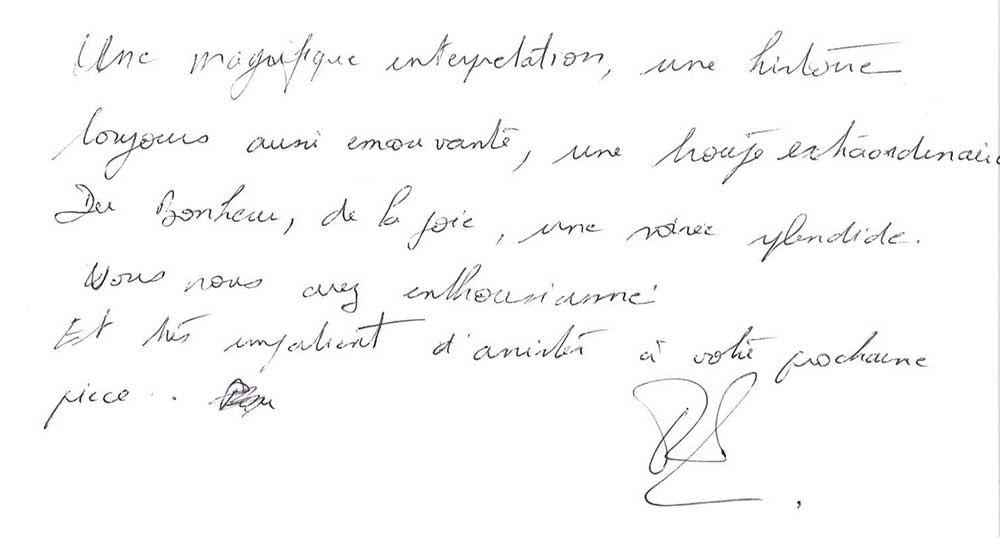 Une magnifique interpretation, une histoire
toujours aussi emouvante, une troupe extraordinaire
Du Bonheur, de la joie, une soirée splendide.
Vous nous avez enthousiasmé
Et très impatient d'assister à votre prochaine
piece..